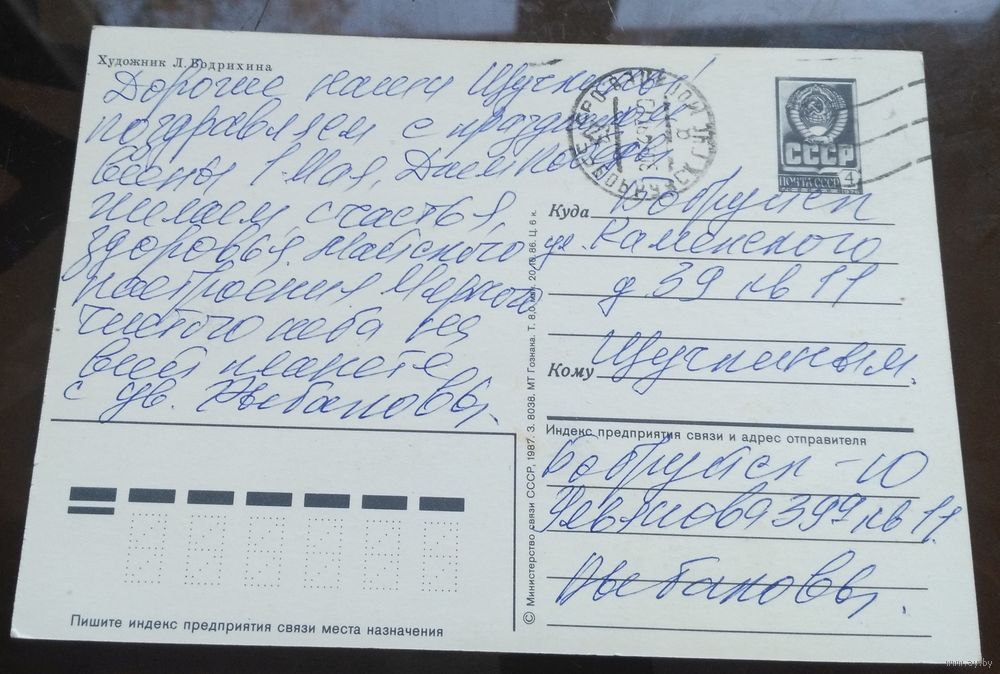 Художник Л. Бодрихина
Дорогие наши Щучкины!
поздравляем с праздником
весны 1 Мая, Днем победы
желаем счастья,
здоровья, майского
настроения Мирного
чистого неба на
всей планете
с ув.
СССР
ПОЧТА СССР 4
Куда Бобруйск
ул. Каменского
д 39 кв 11
Кому Щучкиным.
Индекс предприятия связи и адрес отправителя
Бобруйск-10
397 кв 11.
Пишите индекс предприятия связи места назначения
© Министерство связи СССР, 1987. З. 8038. МТ Гознака. Т. 8,0 20.10.86. Ц. 6 к.
www.ay.by